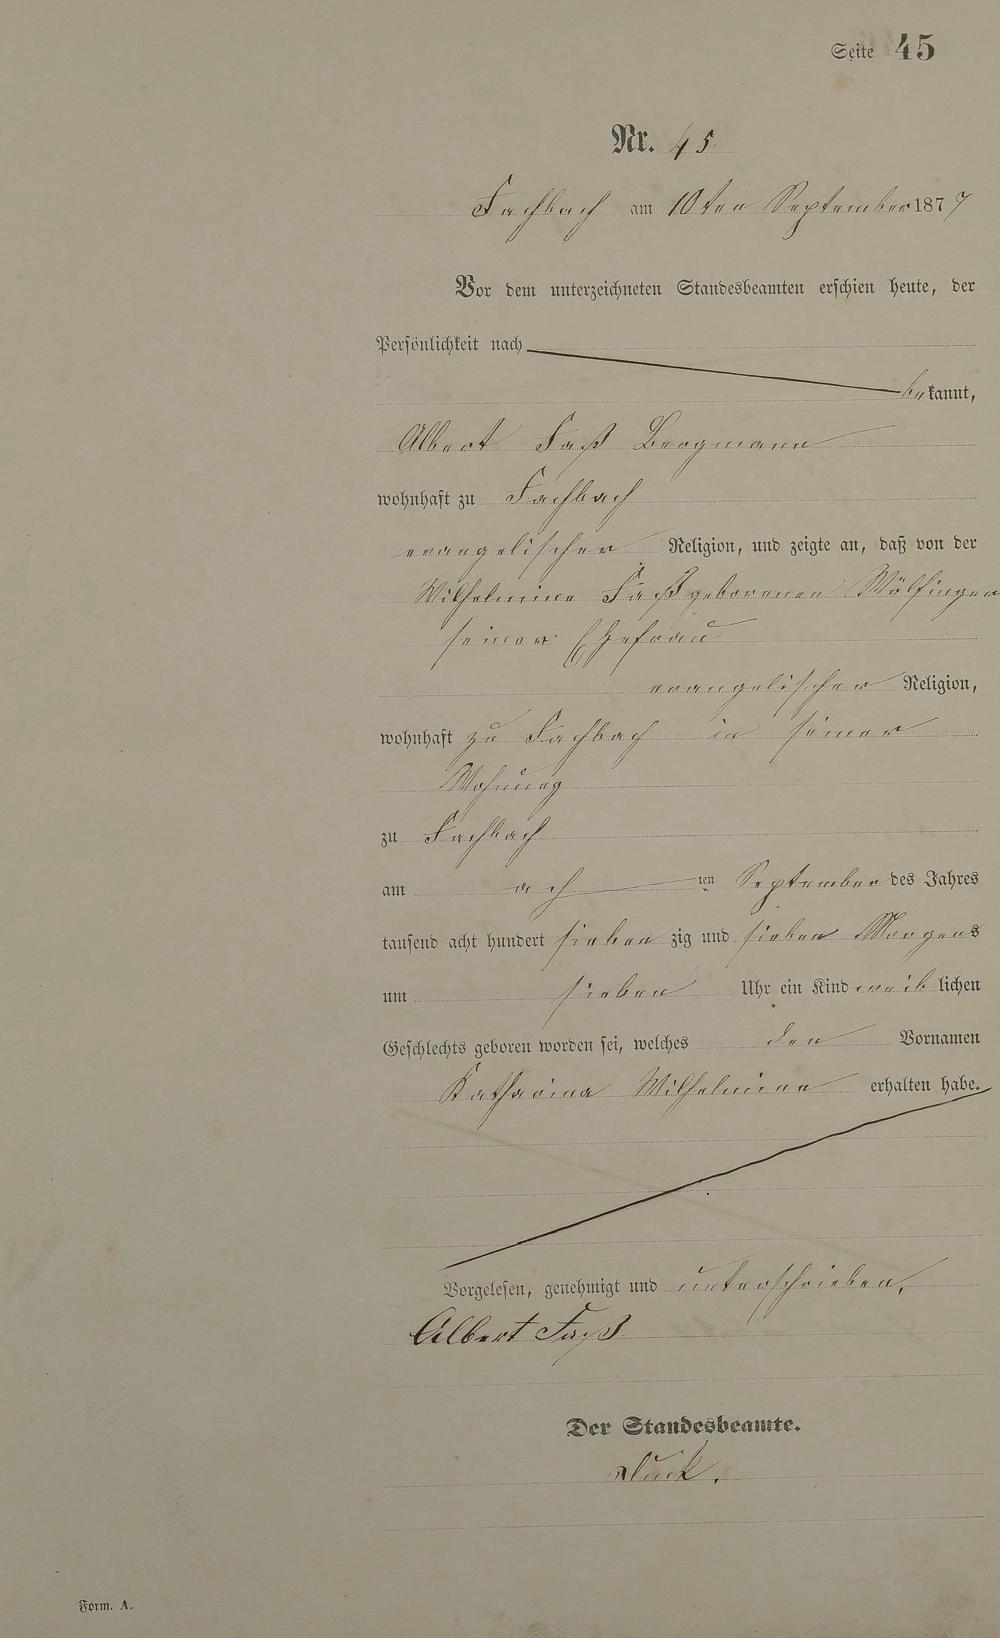 Seite 45
Nr. 45
Fachbach am 10ten September 1877
Vor dem unterzeichneten Standesbeamten erschien heute, der
Persönlichkeit nach
bekannt,
Albert Faß Bergmann
wohnhaft zu Fachbach
evangelischer Religion, und zeigte an, daß von der
Wilhelmine Faß geborenen Wölfinger
seiner Ehefrau
evangelischer Religion,
wohnhaft zu Fachbach in seiner
Wohnung
zu Fachbach
am ach ten September des Jahres
tausend acht hundert sieben zig und sieben Morgens
um sieben Uhr ein Kind weiblichen
Geschlechts geboren worden sei, welches den Vornamen
Katharina Wilhelmine erhalten habe.
Vorgelesen, genehmigt und unterschrieben,
Albert Faß
Der Standesbeamte.
Form. A.